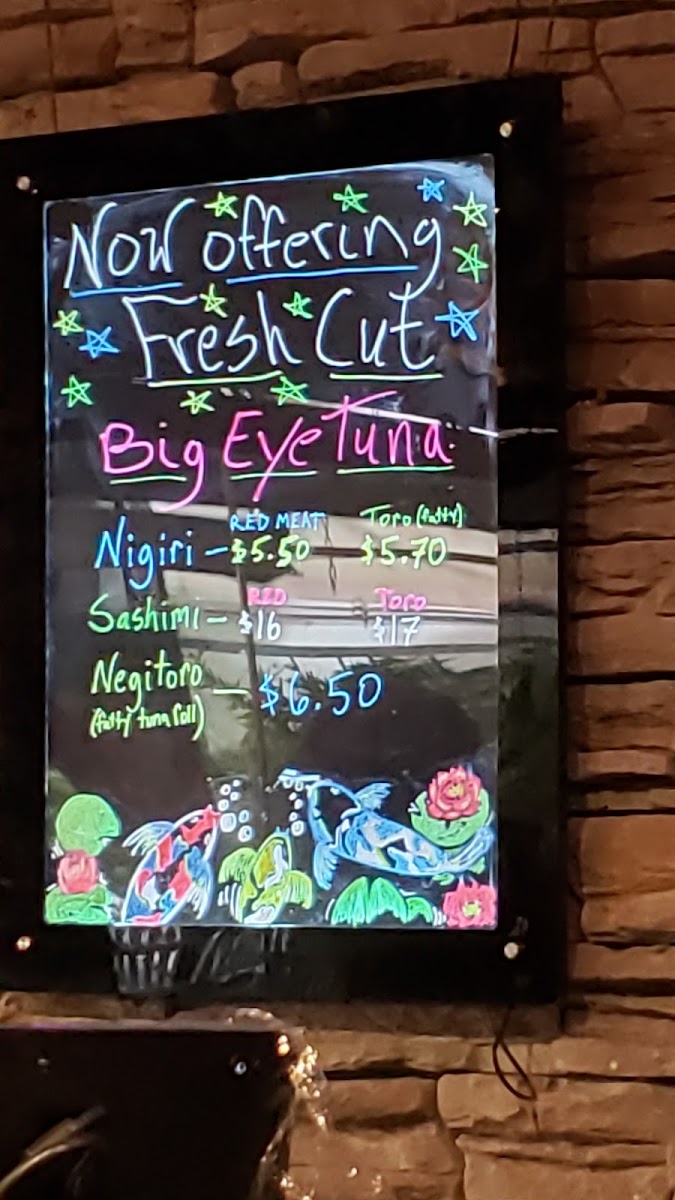 Now offering
Fresh Cut
Big Eye Tuna
RED MEAT Toro (fatty)
Nigiri - $5.50 $5.70
RED TORO
Sashimi - $16 $17
Negitoro - $6.50
(fatty tuna roll)